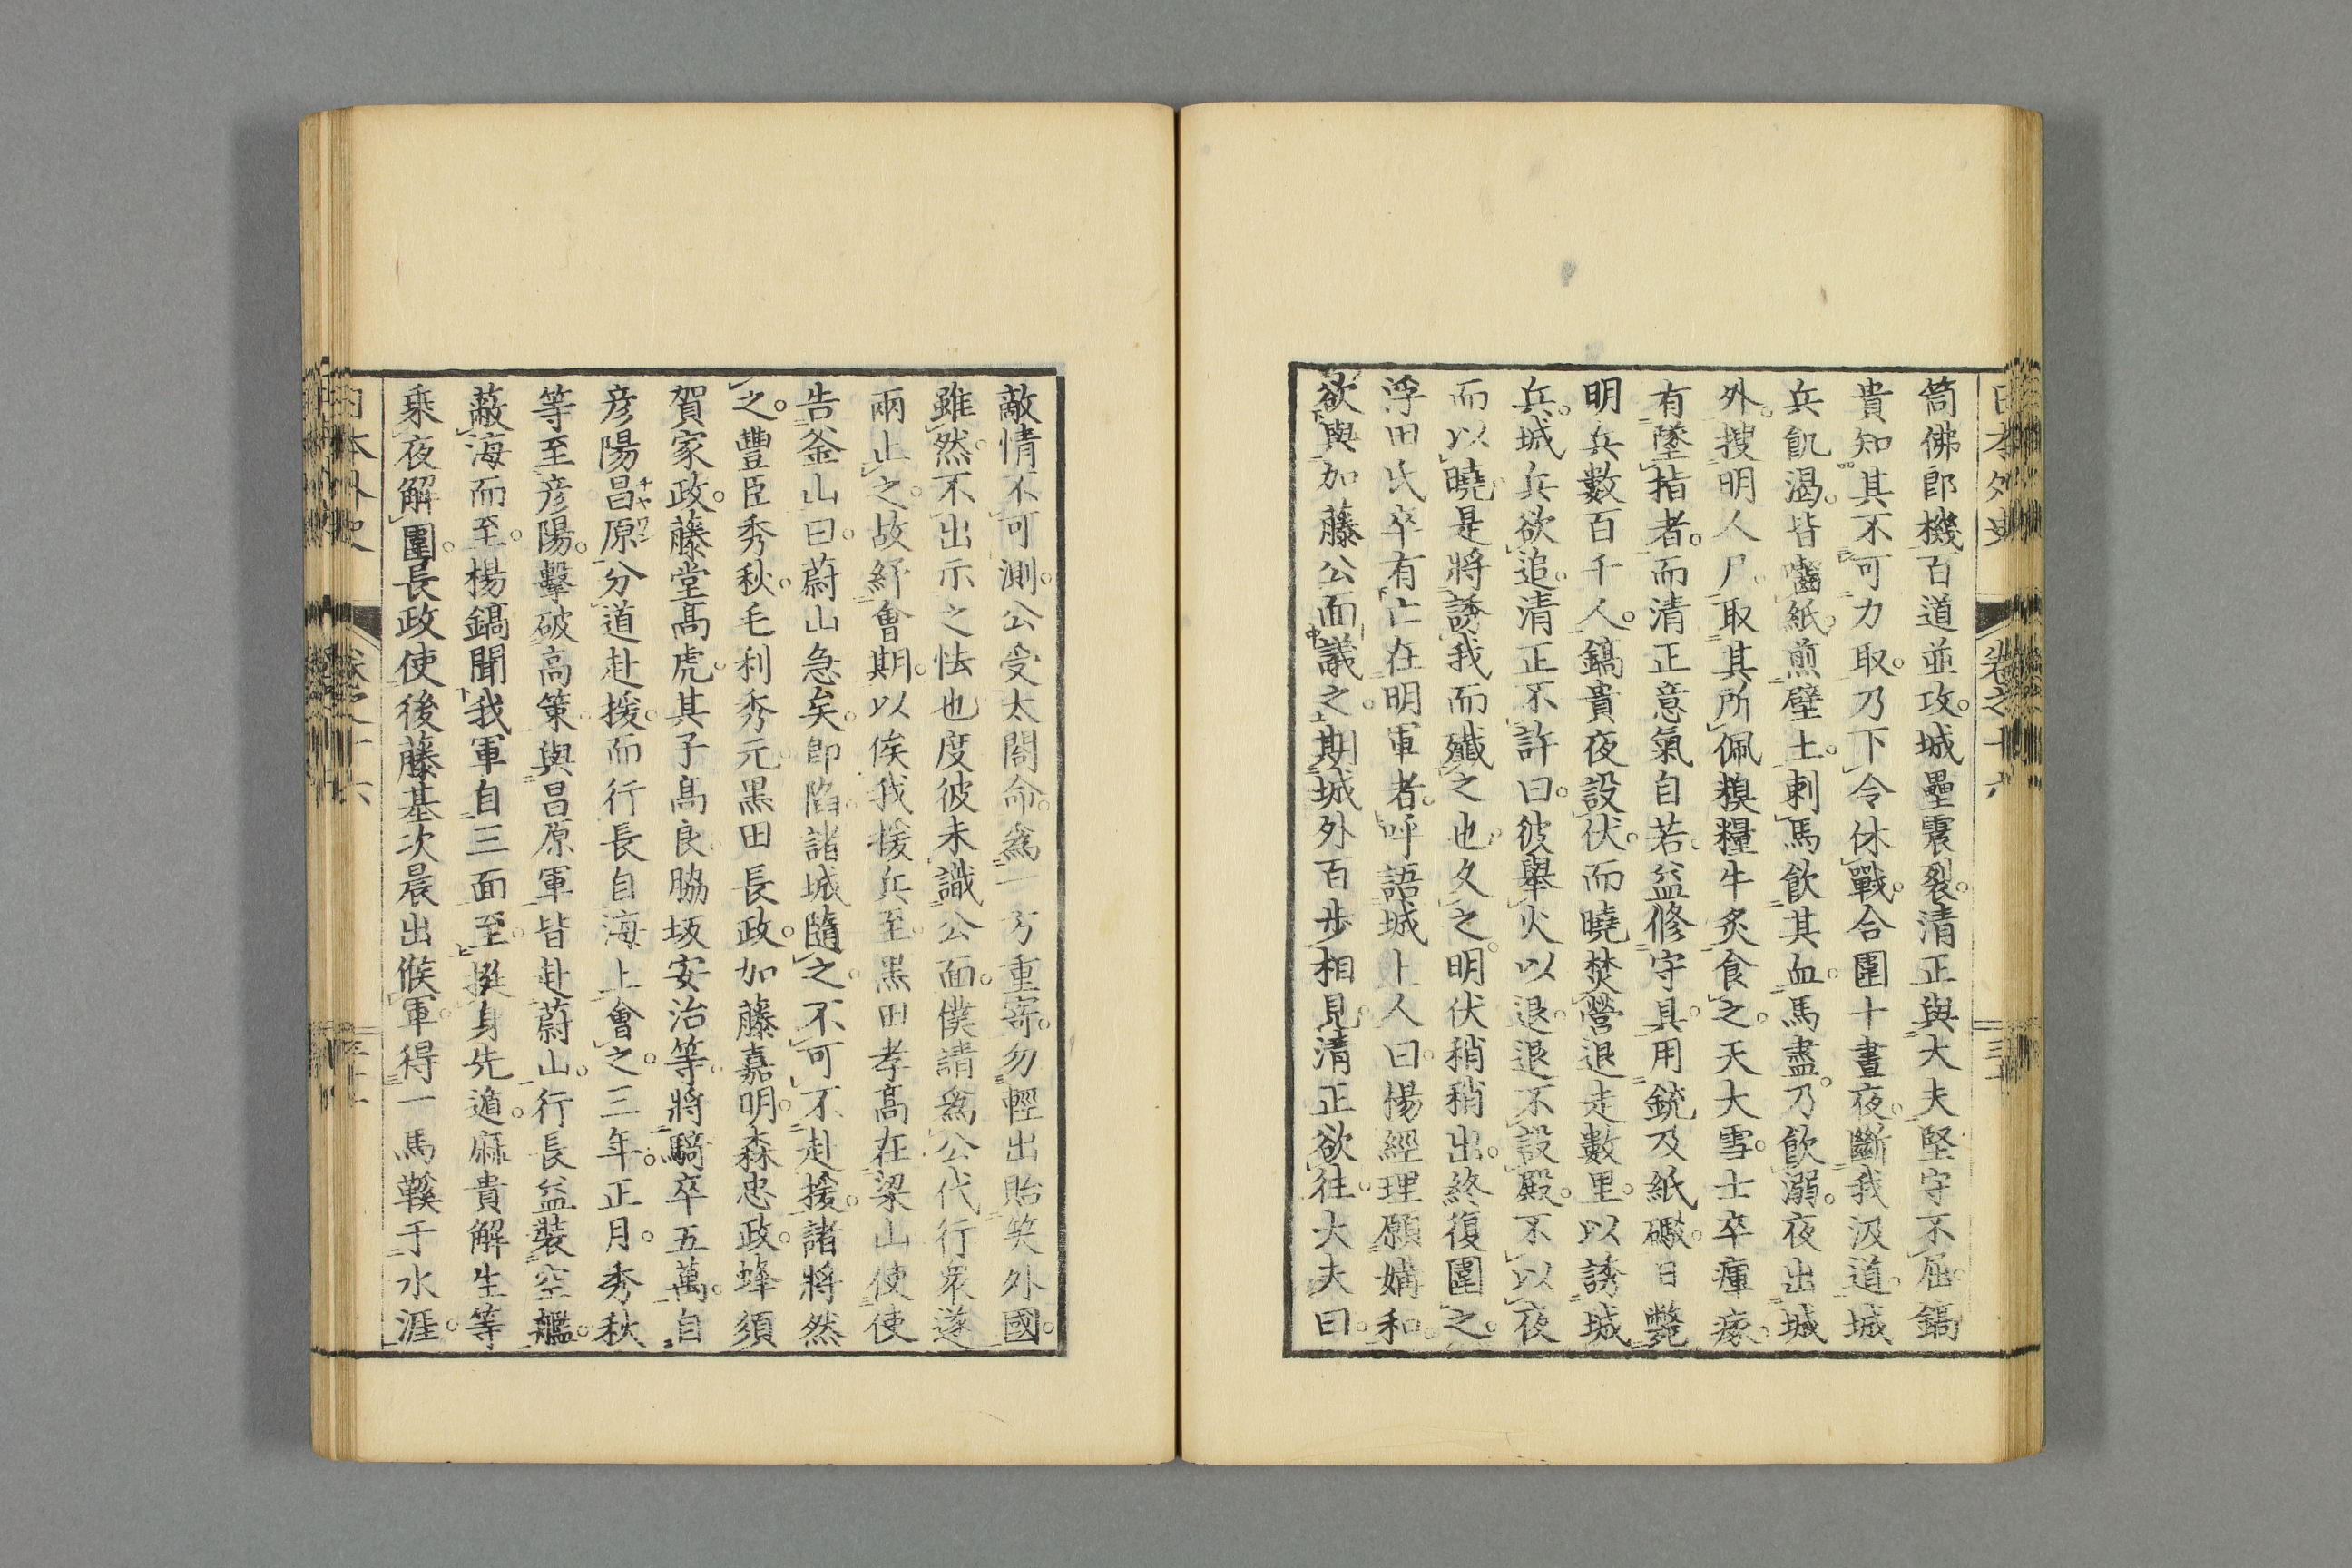 筒佛郎機百道並攻。城壘震裂。清正與大夫堅守不屈。鎬
貴知其不可力取。乃下令休戰。合圍十晝夜。斷我汲道。城
兵飢渴。皆嚙紙煎壁土。刺馬飲其血。馬盡。乃飲溺。夜出城
外。搜明人尸。取其所佩糗糧牛炙食之。天大雪。士卒瘇瘃。
有墜指者。而清正意氣自若。益修守具。用銃及紙礮。日斃
明兵數百千人。鎬貴夜設伏。而曉焚營退走數里。以誘城
兵。城兵欲追。清正不許曰。彼舉火以退。退不設殿。不以夜
而以曉。是將誘我而殲之也。久之。明伏稍稍出。終復圍之。
浮田氏卒有亡在明軍者。呼語城上人曰。楊經理願媾和。
欲與加藤公面議之。期城外百步相見。清正欲往。大夫曰。
敵情不可測。公受太閤命。為一方重寄。勿輕出貽笑外國。
雖然。不出示之怯也。度彼未識公面。僕請為公代行。眾遂
兩止之。故紓會期。以俟我援兵至。黑田孝高在梁山。使使
告釜山曰。蔚山急矣。即陷。諸城隨之。不可不赴援。諸將然
之。豐臣秀秋。毛利秀元。黑田長政。加藤嘉明。森忠政。蜂須
賀家政。藤堂高虎。其子高良。脇坂安治等。將騎卒五萬。自
彥陽昌原分道赴援。而行長自海上會之。三年。正月。秀秋
等至彥陽。擊破高策。與昌原軍皆赴蔚山。行長益裝空艦。
蔽海而至。楊鎬聞我軍自三面至。挺身先遁。麻貴解生等
乘夜解圍。長政使後藤基次晨出候軍。得一馬鞍于水涯。
日本外史
卷之十六